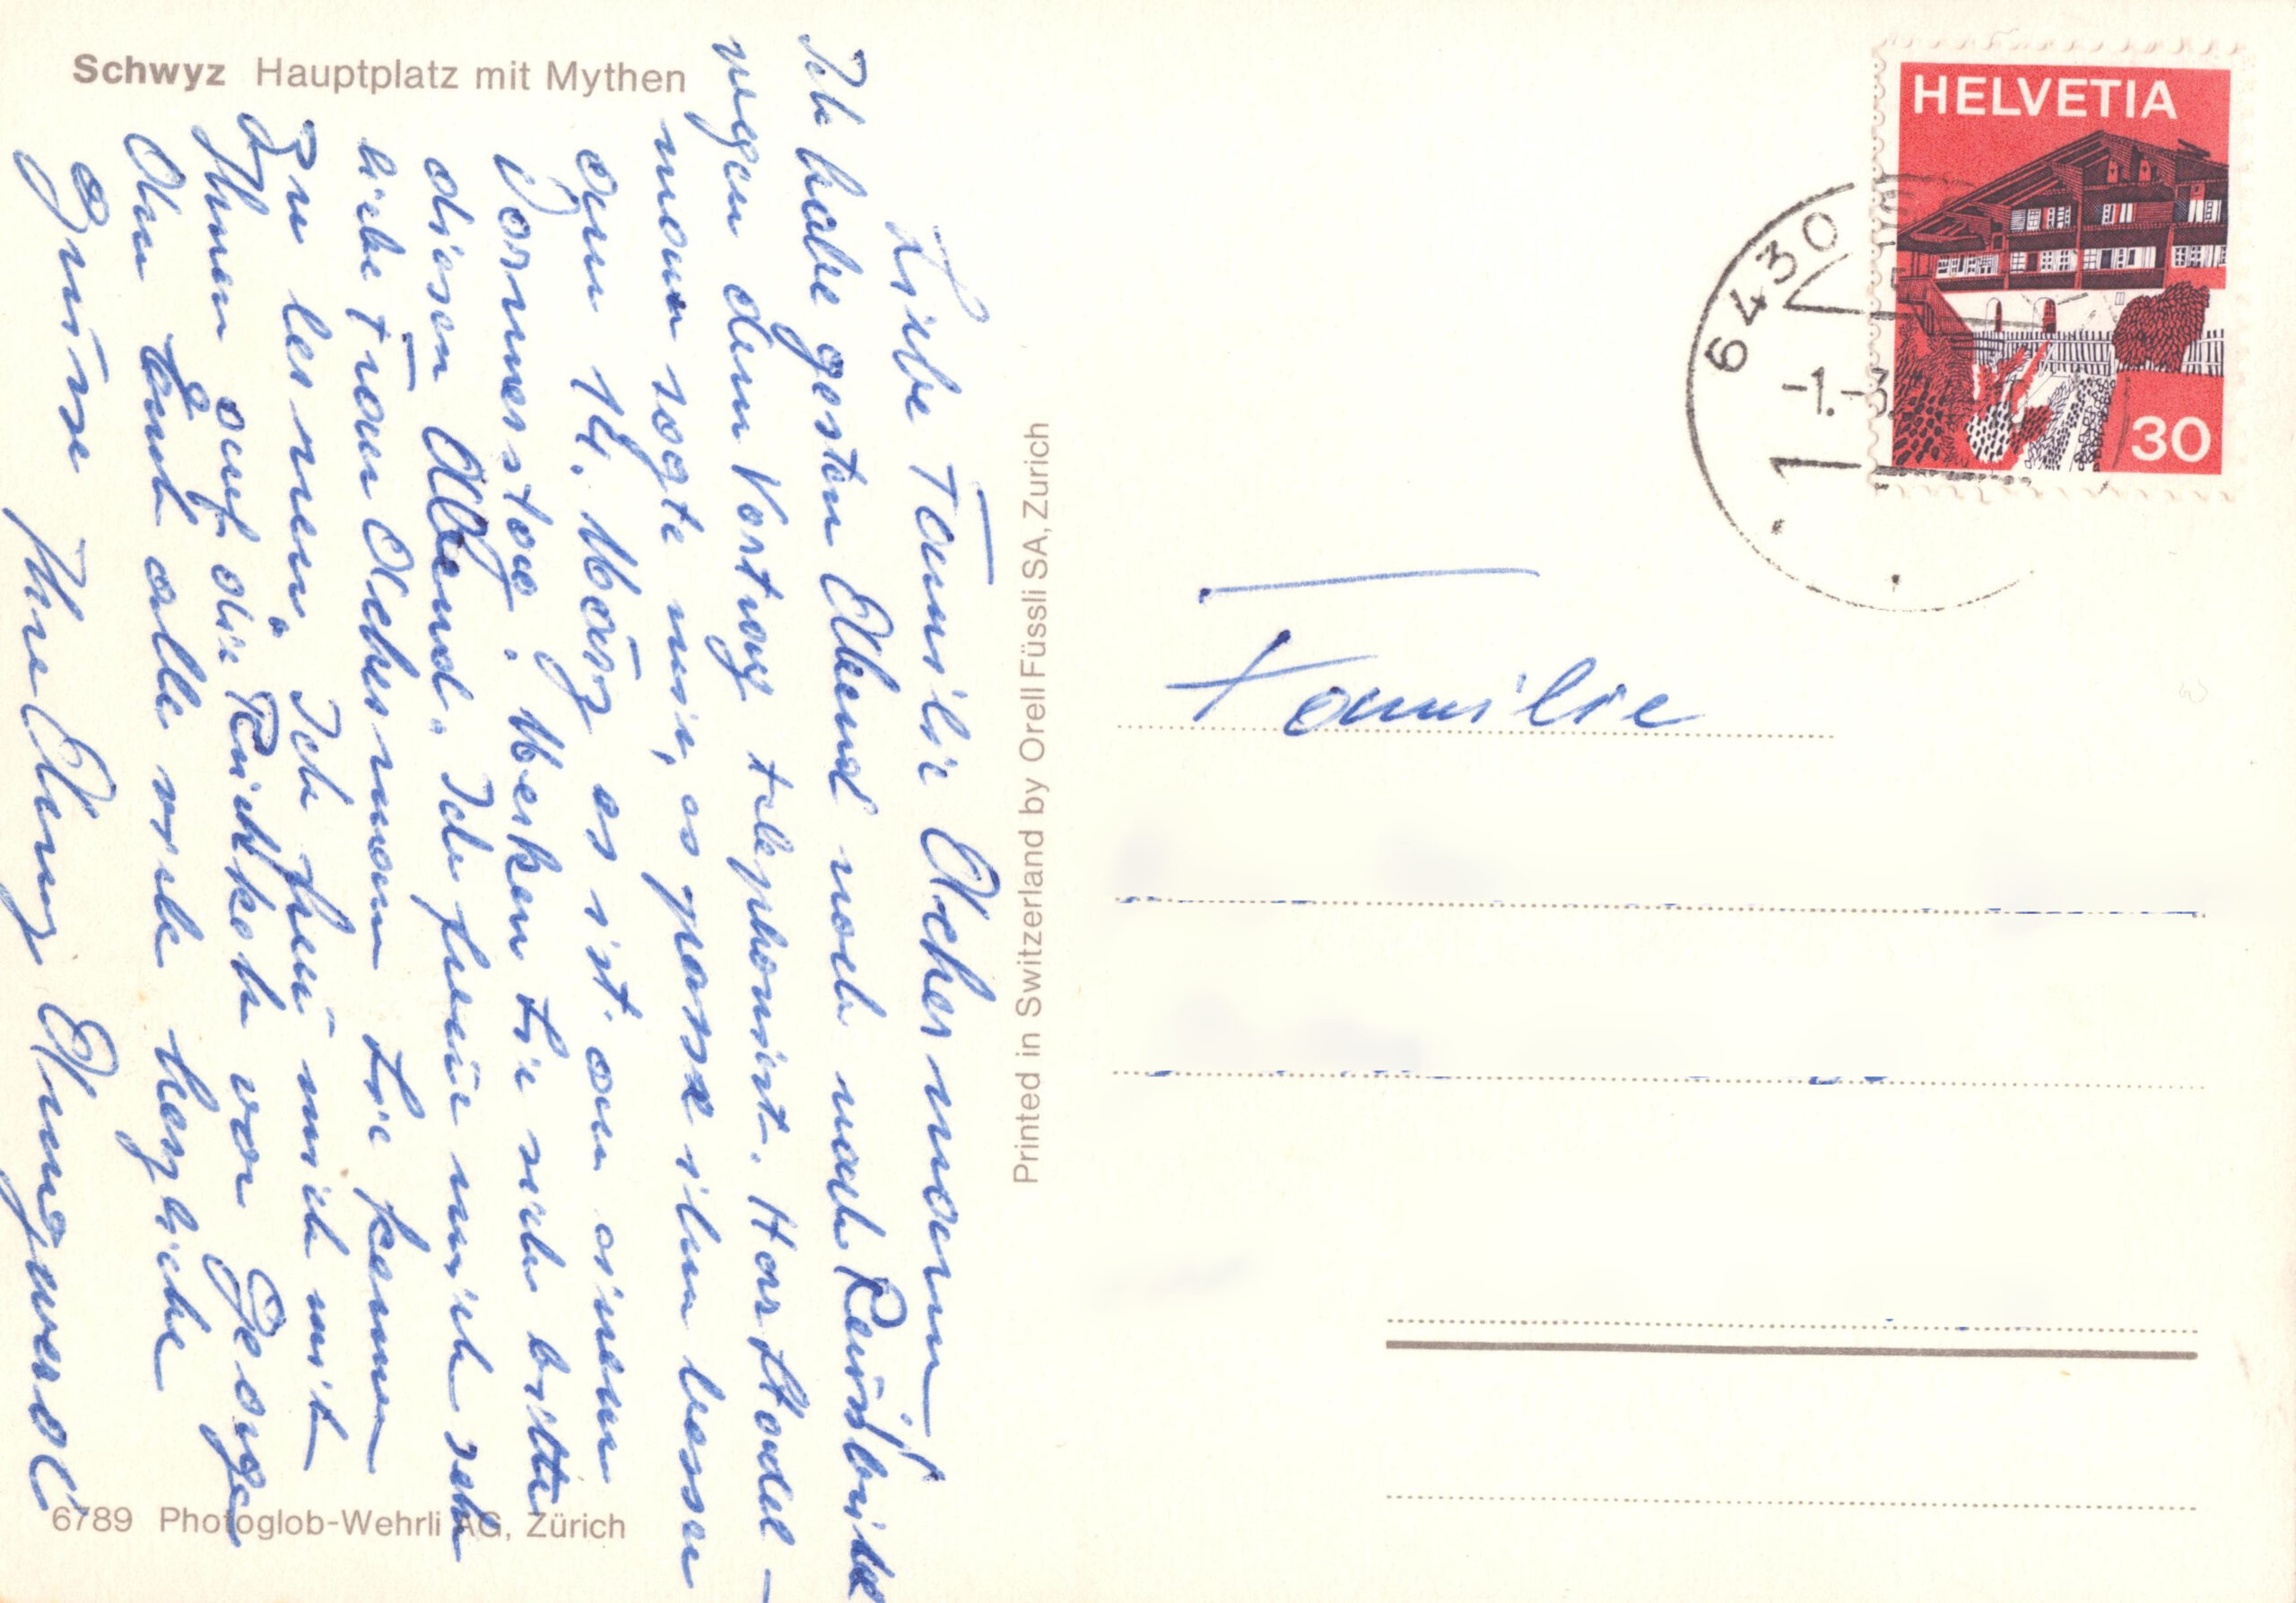 Schwyz Hauptplatz mit Mythen
Liebe Familie Achermann!
Ich habe gestern Abend noch nach
wegen dem Vortrag telephoniert. Herr Stadel-
mann sagte mir, es passe ihm besser
am 14. März es ist an einem
Donnerstag. Merken Sie sich bitte
diesen Abend. Ich freue mich sehr
liebe Frau Achermann Sie kennen
zu lernen. Ich freue mich mit
Ihnen auf die Rückkehr von George
Ihnen alle recht herzliche
Grüsse Ihre
6789 Photoglob-Wehrli AG, Zürich
Printed in Switzerland by Orell Füssli SA, Zurich
HELVETIA
30
6430
-1.-3.
Familie